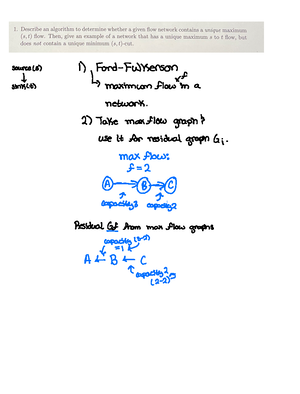 1. Describe an algorithm to determine whether a given flow network contains a unique maximum
(s, t) flow. Then, give an example of a network that has a unique maximum s to t flow, but
does not contain a unique minimum (s, t)-cut.
source(s)
↓
sink(s)
1) Ford-Fulkerson
f
↳ maximum flow in a
network.
2) Take max flow graph &
use it for residual graph
max flow:
f = 2
A → B → C
capacity 3 capacity 2
Residual Gf from max flow graph
capacity (3-2)
= 1
A ← B ← C
capacity 2
(2-2)